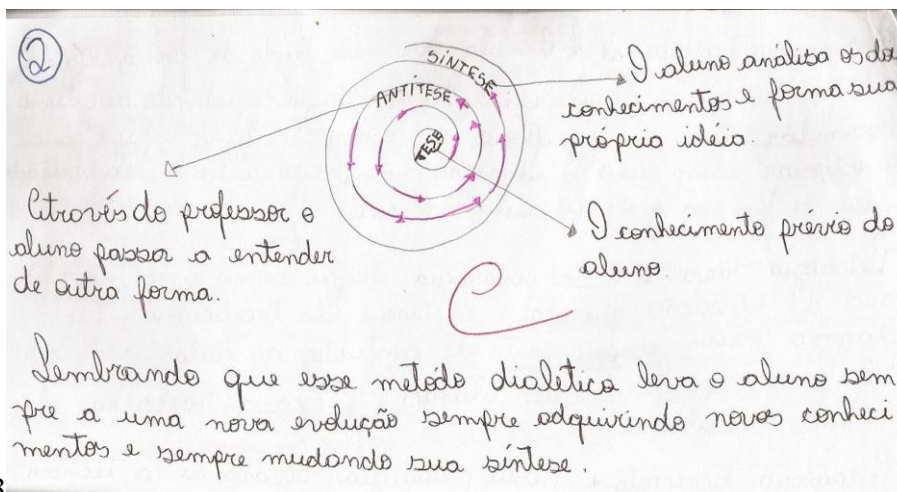 2
SÍNTESE
ANTÍTESE
TESE
O aluno analisa os do
conhecimentos e forma sua
própria idéia.
O conhecimento prévio do
aluno
Através do professor o
aluno passa a entender
de outra forma.
Lembrando que esse metodo dialético leva o aluno sem
pre a uma nova evolução sempre adquirindo novos conheci
mentos e sempre mudando sua síntese.